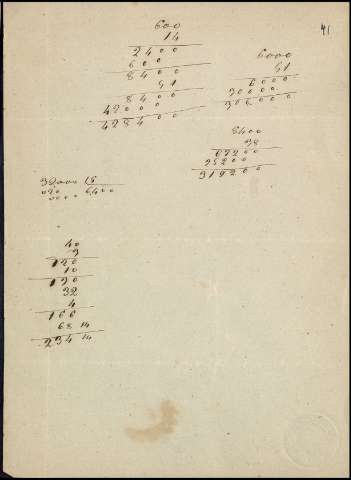 41
600
14
2400
600
8400
51
8400
42000
428400
6000
51
6000
30000
306000
8400
38
67200
25200
319200
32000 5
020 6400
0000
40
3
120
10
130
32
4
166
68 14
234 14